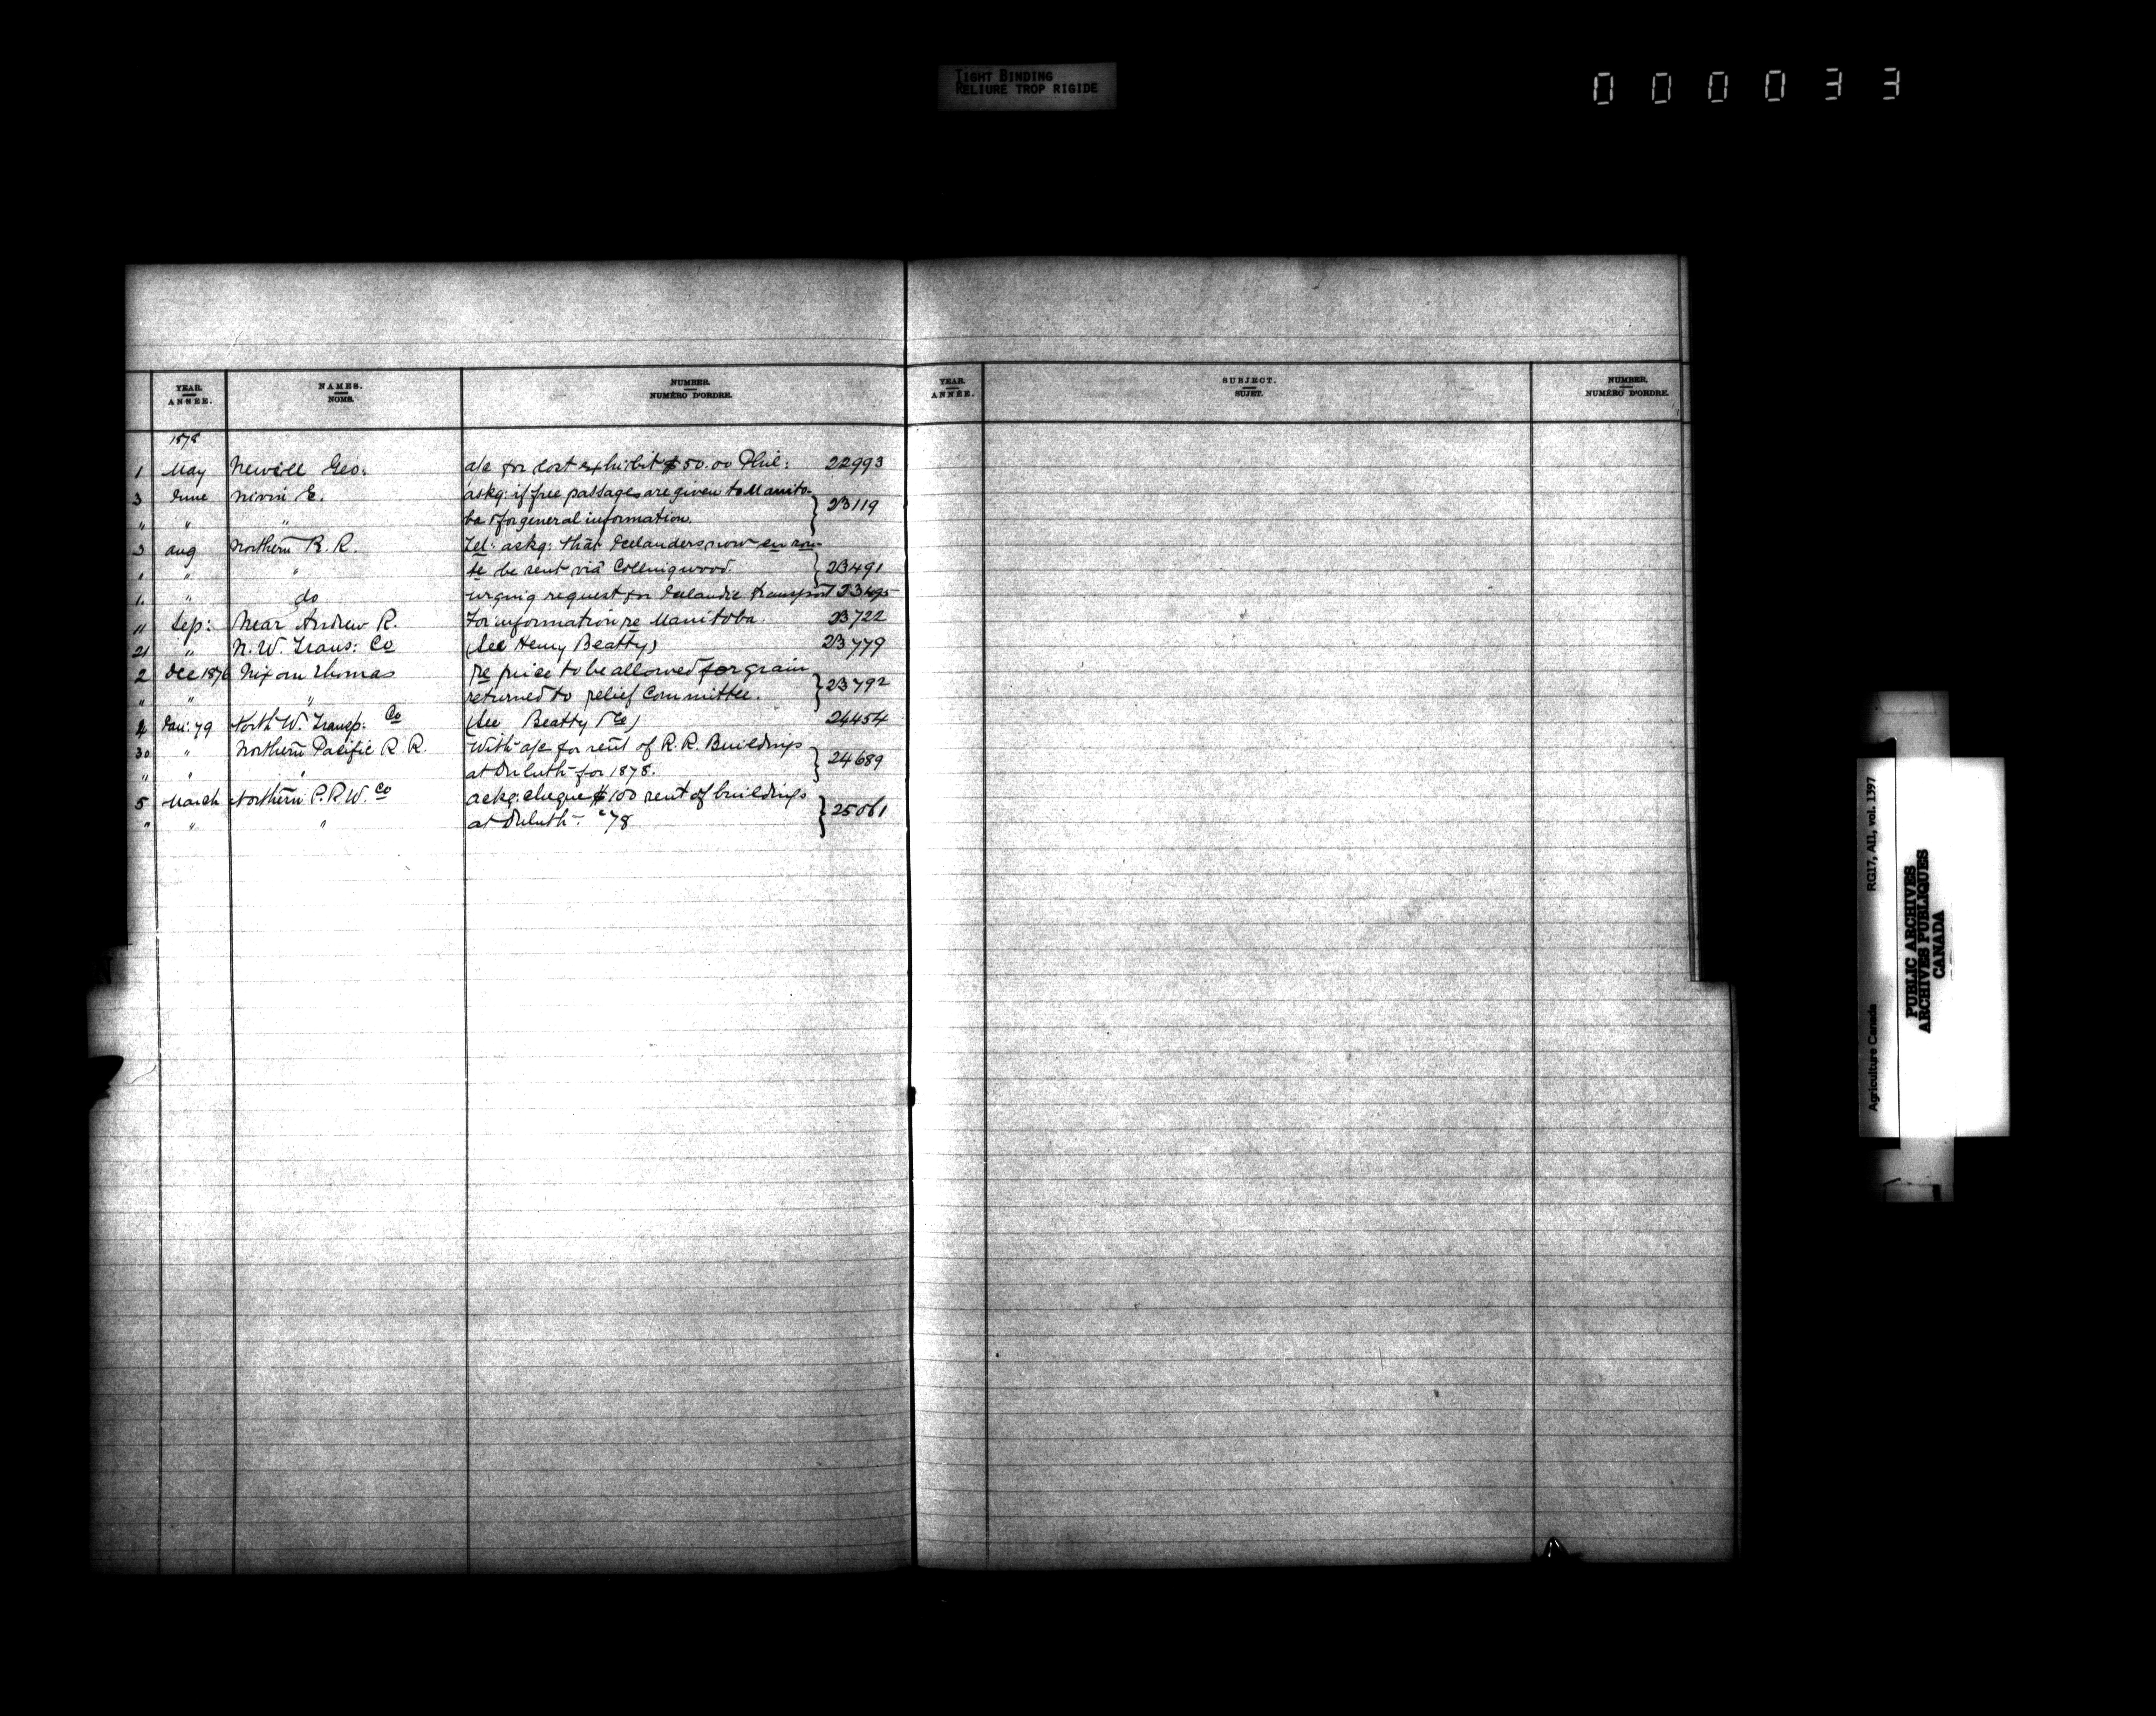 TIGHT BINDING
RELIURE TROP RIGIDE
000033
YEAR. ANNÉE. NAMES. NOMS. NUMBER. NUMÉRO D'ORDRE.
1878
1 May Newell Geo: a/c for lost exhibit $50.00 Phil: 22993
3 June E. askg: if free passages are given to Manito-
" " " ba & for general information. } 23119
3 Aug Northern R. R. Tel: askg: that Icelanders now en rou-
" " " te be sent via Collingwood. } 23491
1. " do urging request for Icelandic transport 23495
11 Sep: Near Andrew R. For information re Manitoba. 23722
21 " N. W. Trans: Co (See Henry Beatty) 23779
2 Dec 1876 Nixon Thomas re price to be allowed for grain
" " " returned to relief Committee. } 23792
4 Jan: 79 North W. Transp: Co (See Beatty & Co) 24454
30 " Northern Pacific R. R. With a/c for rent of R. R. Buildings
" " " at Duluth for 1878. } 24689
5 March Northern P. R. W. Co ackg: cheque $100 rent of buildings
" " " at Duluth - "78 } 25061
YEAR. ANNÉE. SUBJECT. SUJET. NUMBER. NUMÉRO D'ORDRE.
N
Agriculture Canada RG17, AII, vol. 1397
PUBLIC ARCHIVES
ARCHIVES PUBLIQUES
CANADA